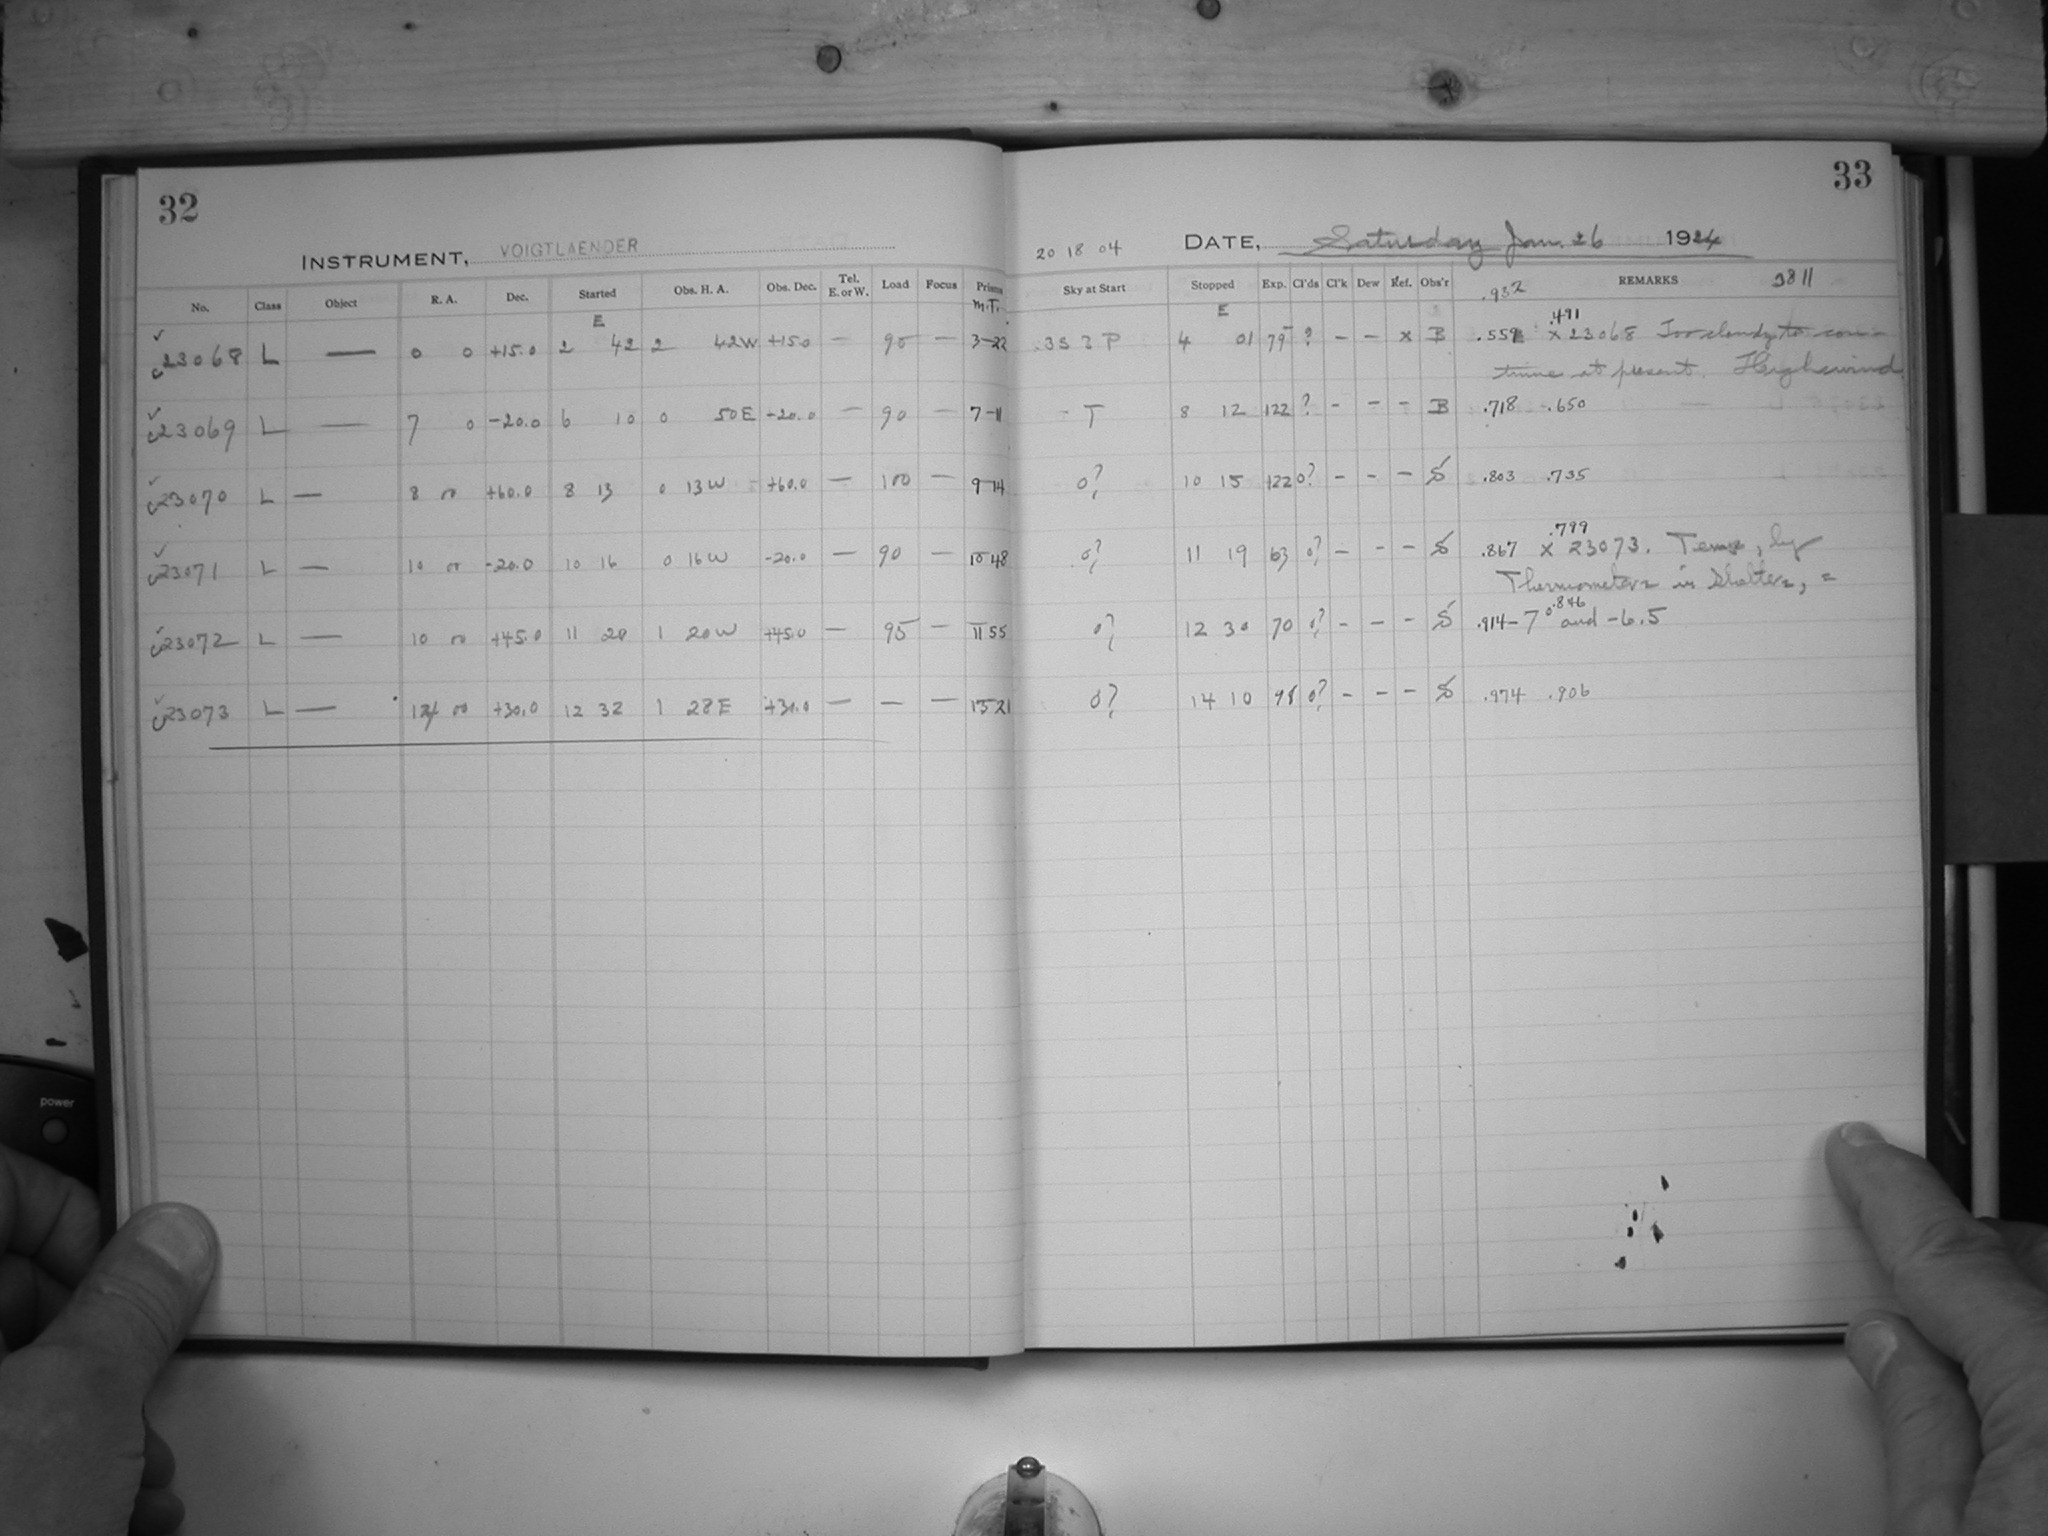 32
33
INSTRUMENT, VOIGTLAENDER
20 18 04 DATE, Saturday Jan. 26 1924
No. Class Object R. A. Dec. Started Obs. H. A. Obs. Dec. Tel. E. or W. Load Focus Prisms M.T. Sky at Start Stopped Exp. Cl'ds Cl'k Dew Ref. Obs'r REMARKS 3811
E E .932
.491
✓23068 L — 0 0 +15.0 2 42 2 42W +15.0 — 90 — 3-22 3S 3 P 4 01 79 ? - - x B .559 x 23068 Too cloudy to con-
tinue at present. High wind
✓23069 L — 7 0 -20.0 6 10 0 50E -20.0 — 90 — 7-11 T 8 12 122 ? - - - B .718 .650
✓23070 L — 8 00 +60.0 8 13 0 13W +60.0 — 100 — 9 14 0? 10 15 122 0? - - - S .803 .735
.799
✓23071 L — 10 00 -20.0 10 16 0 16W -20.0 — 90 — 10 48 0? 11 19 63 0? - - - S .867 x 23073. Temps, by
Thermometers in Shelters, =
.846
✓23072 L — 10 00 +45.0 11 20 1 20W +45.0 — 95 — 11 55 0? 12 30 70 0? - - - S .914 -7° and -6.5
✓23073 L — 14 00 +30.0 12 32 1 28E +30.0 — — — 13 21 0? 14 10 98 0? - - - S .974 .906
power